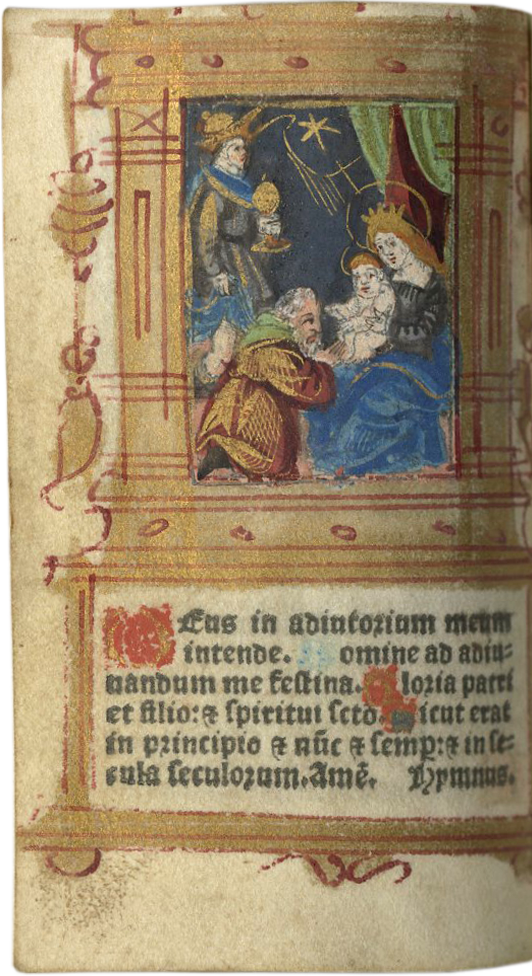 Deus in adiutorium meum
intende. Domine ad adiu⸗
nandum me festina. Gloria patri
et filio: ⁊ spiritui scto. Sicut erat
in principio ⁊ nūc ⁊ semp: ⁊ in se⸗
cula seculorum. Amē. Hymnus.